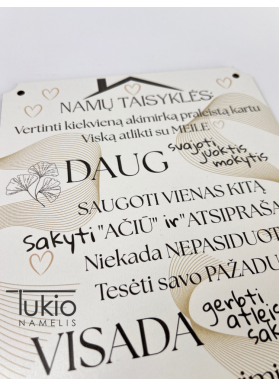 NAMŲ TAISYKLĖS:
Vertinti kiekvieną akimirką praleistą kartu
Viską atlikti su MEILE
DAUG
svajoti
juoktis
mokytis
SAUGOTI VIENAS KITĄ
sakyti "AČIŪ" ir "ATSIPRAŠA
Niekada NEPASIDUOT
Tesėti savo PAŽADU
Tukio
NAMELIS
VISADA
gerbti
atleis
sak